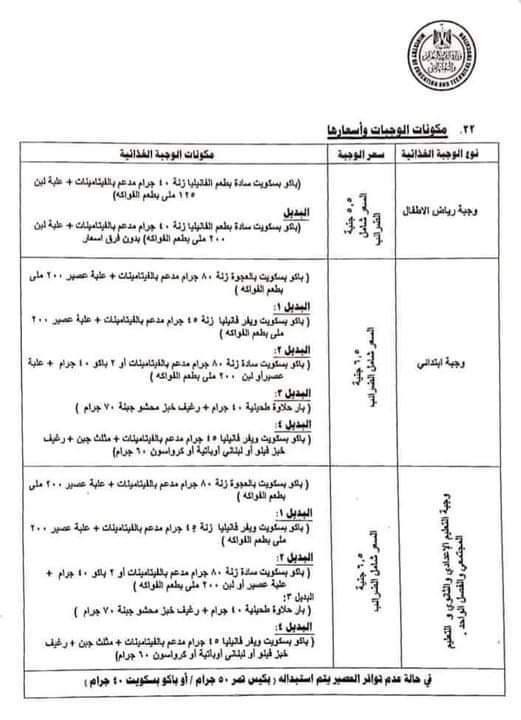 MINISTRY OF EDUCATION AND TECHNICAL EDUCATION
٢٢. مكونات الوجبات وأسعارها
نوع الوجبة الغذائية
سعر الوجبة
مكونات الوجبة الغذائية
وجبة رياض الاطفال
٥,٥ جنية
السعر شامل الضرائب
(باكو بسكويت سادة بطعم الفانيليا زنة ٤٠ جرام مدعم بالفيتامينات + علبة لبن
١٢٥ ملى بطعم الفواكه)
البديل
(باكو بسكويت سادة بطعم الفانيليا زنة ٤٠ جرام مدعم بالفيتامينات + علبة لبن
٢٠٠ ملى بطعم الفواكه) بدون فرق اسعار
وجبة ابتدائي
٦,٥ جنية
السعر شامل الضرائب
( باكو بسكويت بالعجوة زنة ٨٠ جرام مدعم بالفيتامينات + علبة عصير ٢٠٠ ملى
بطعم الفواكه )
البديل ١:
( باكو بسكويت ويفر فانيليا زنة ٤٥ جرام مدعم بالفيتامينات + علبة عصير ٢٠٠
ملى بطعم الفواكه )
البديل ٢:
( باكو بسكويت سادة زنة ٨٠ جرام مدعم بالفيتامينات أو ٢ باكو ٤٠ جرام + علبة
عصير أو لبن ٢٠٠ ملى بطعم الفواكه )
البديل ٣:
( بار حلاوة طحينية ٤٠ جرام + رغيف خبز محشو جبنة ٧٠ جرام )
البديل ٤:
( باكو بسكويت ويفر فانيليا ٤٥ جرام مدعم بالفيتامينات + مثلث جبن + رغيف
خبز فينو أو لبناني أوباتية أو كرواسون ٦٠ جرام)
وجبة التعليم الإعدادي والثانوي و التعليم
المجتمعي والفصل الواحد .
٦,٥ جنية
السعر شامل الضرائب
( باكو بسكويت سادة زنة ٨٠ جرام مدعم بالفيتامينات + علبة عصير ٢٠٠ ملى
بطعم الفواكه )
البديل ١:
( باكو بسكويت ويفر فانيليا زنة ٤٥ جرام مدعم بالفيتامينات + علبة عصير ٢٠٠
ملى بطعم الفواكه )
البديل ٢:
( باكو بسكويت سادة زنة ٨٠ جرام مدعم بالفيتامينات أو ٢ باكو ٤٠ جرام +
علبة عصير أو لبن ٢٠٠ ملى بطعم الفواكه )
البديل ٣:
( بار حلاوة طحينية ٤٠ جرام + رغيف خبز محشو جبنة ٧٠ جرام )
البديل ٤:
( باكو بسكويت ويفر فانيليا ٤٥ جرام مدعم بالفيتامينات + مثلث جبن + رغيف
خبز فينو أو لبناني أوباتية أو كرواسون ٦٠ جرام)
في حالة عدم توافر العصير يتم استبداله ( بكيس تمر ٥٠ جرام / أو باكو بسكويت ٤٠ جرام )